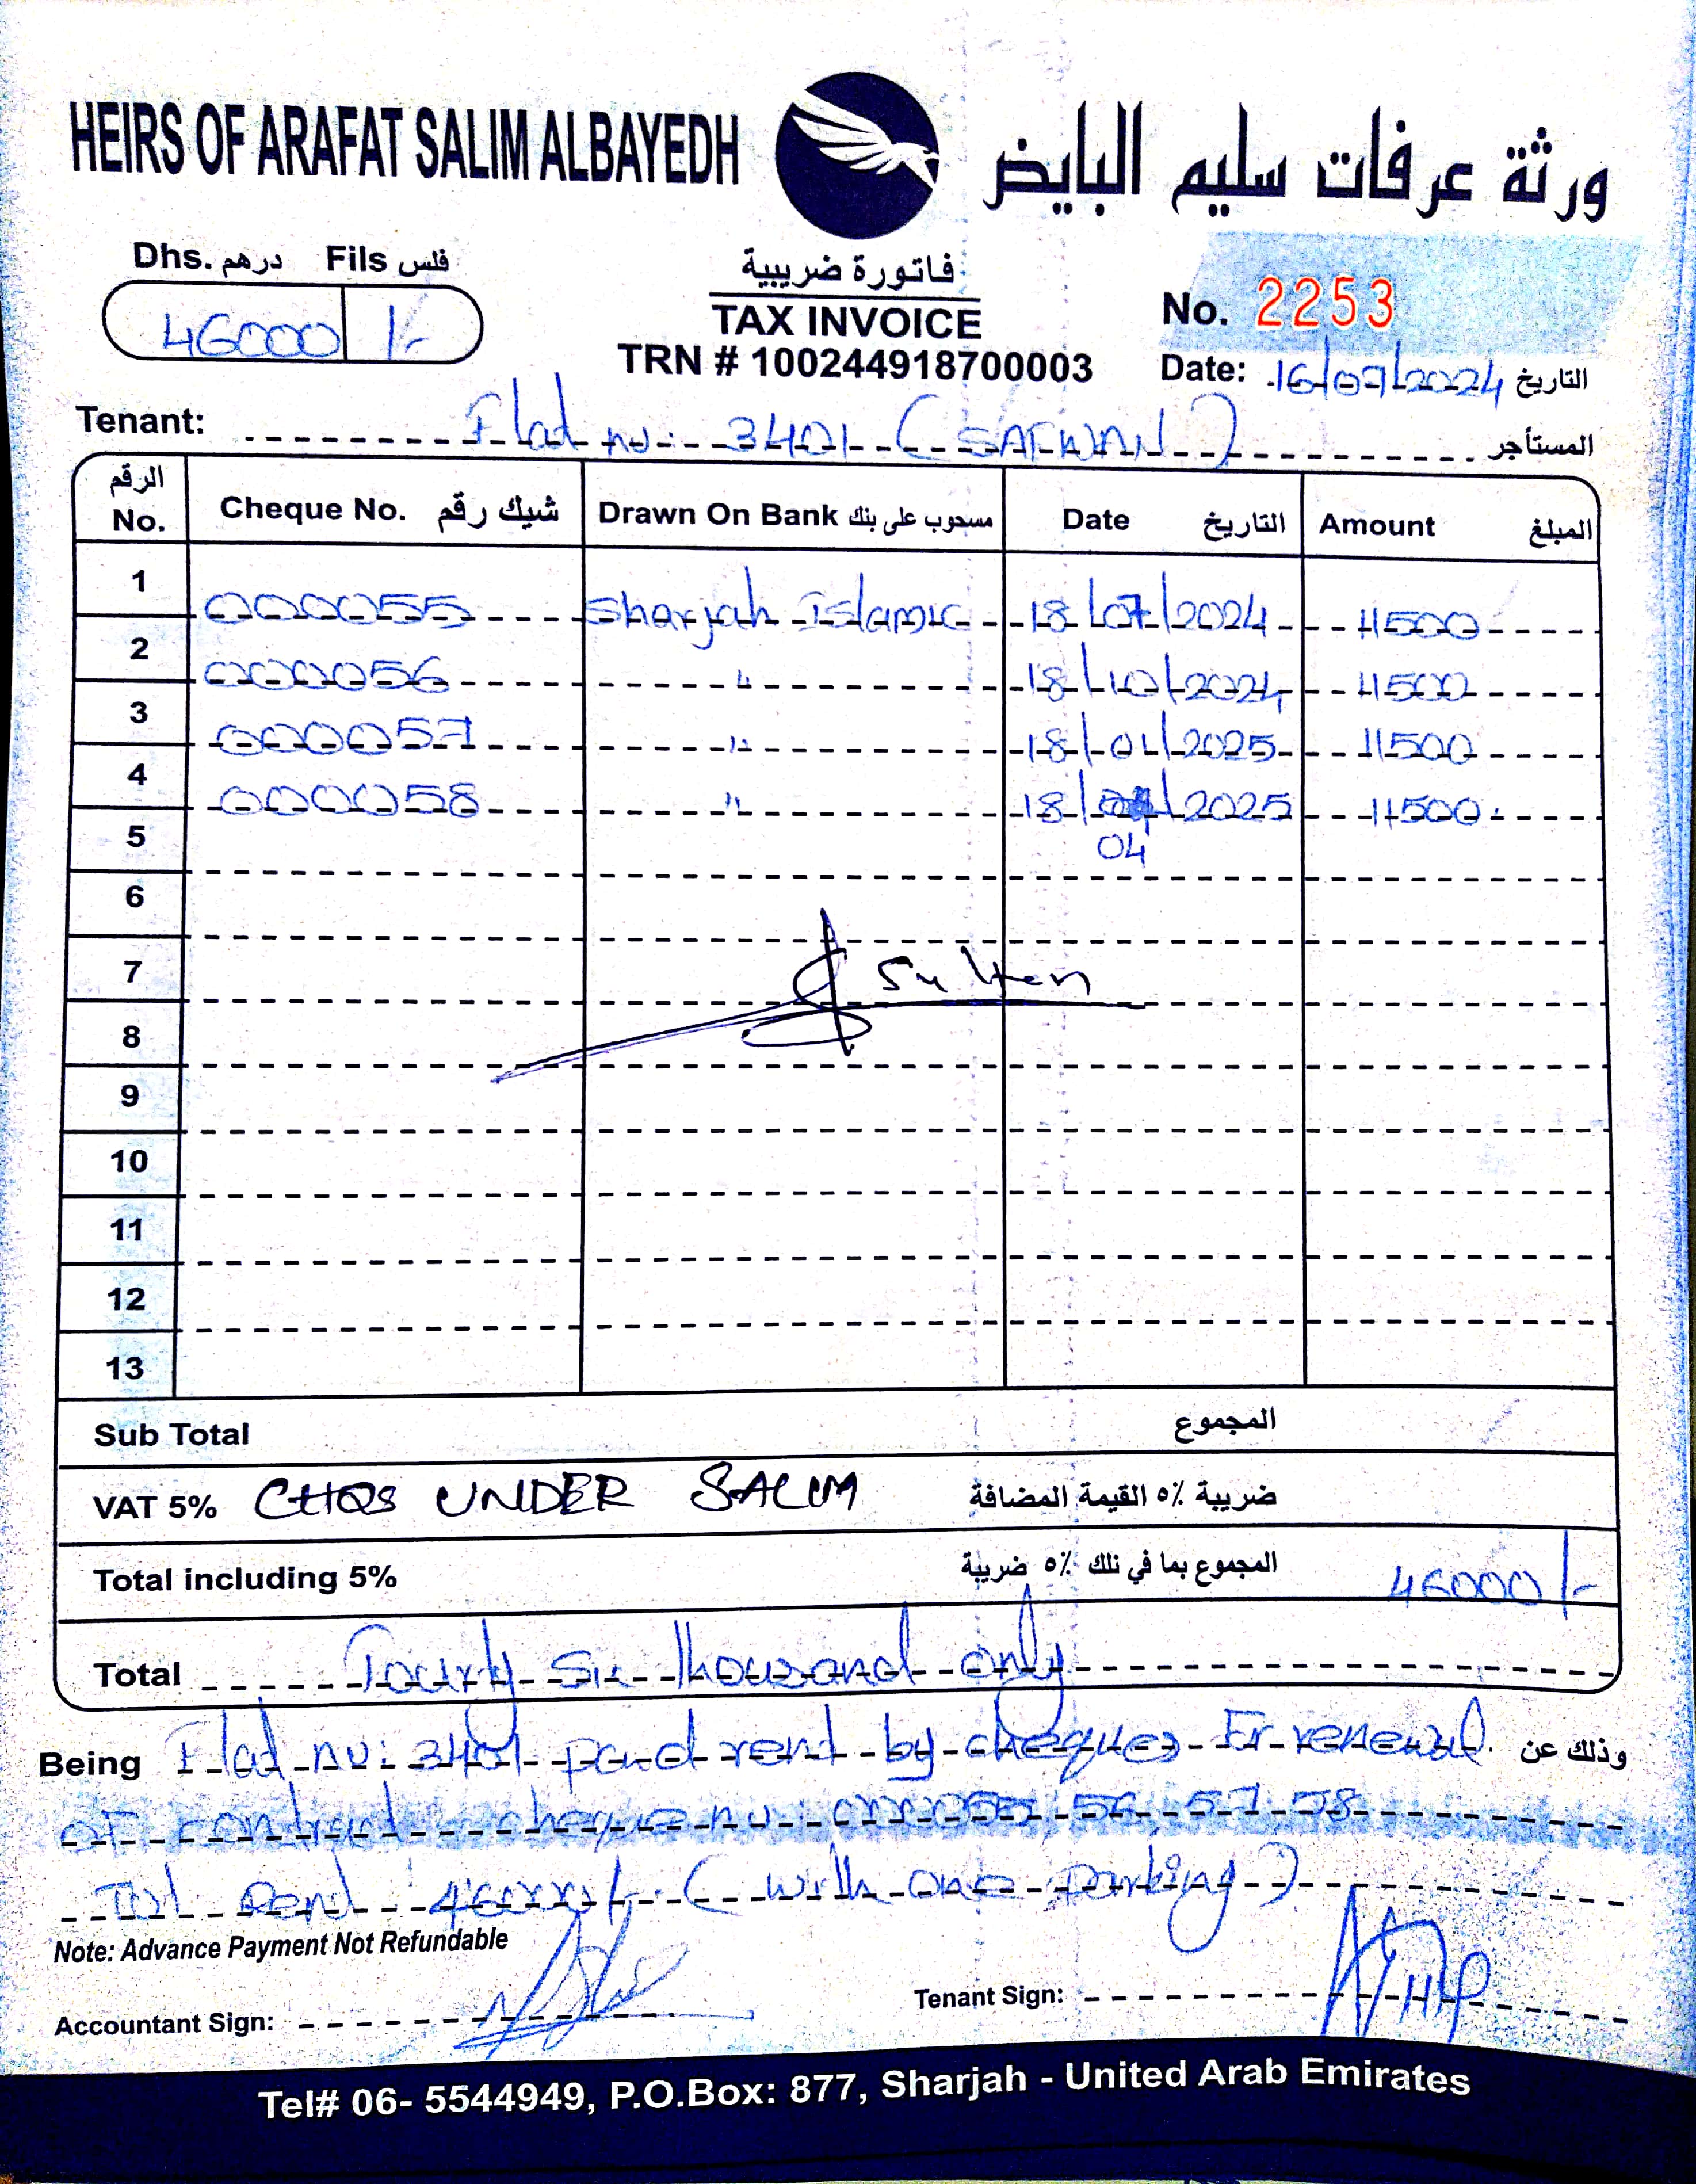 HEIRS OF ARAFAT SALIM ALBAYEDH ورثة عرفات سليم البايض
Dhs. درهم Fils فلس
46000 /-
فاتورة ضريبية
TAX INVOICE
TRN # 100244918700003
No. 2253
Date: 16/07/2024 التاريخ
Tenant: Flat no: 3401 (SAFWAN) المستأجر
الرقم No. Cheque No. شيك رقم Drawn On Bank مسحوب على بنك Date التاريخ Amount المبلغ
1 000055 Sharjah Islamic 18/07/2024 11500
2 000056 " 18/10/2024 11500
3 000057 " 18/01/2025 11500
4 000058 " 18/04/2025 11500
5 04
6
7 Sultan
8
9
10
11
12
13
Sub Total المجموع
VAT 5% CHQS UNDER SALIM ضريبة ٥٪ القيمة المضافة
Total including 5% المجموع بما في ذلك ٥٪ ضريبة 46000/-
Total Fourty Six Thousand only
Being Flat no: 3401 paid rent by cheques For renewal وذلك عن
of contract cheque no: 000055, 56, 57, 58
Tot Rent: 46000/- (with one parking)
Note: Advance Payment Not Refundable
Accountant Sign: Tenant Sign:
Tel# 06- 5544949, P.O.Box: 877, Sharjah - United Arab Emirates